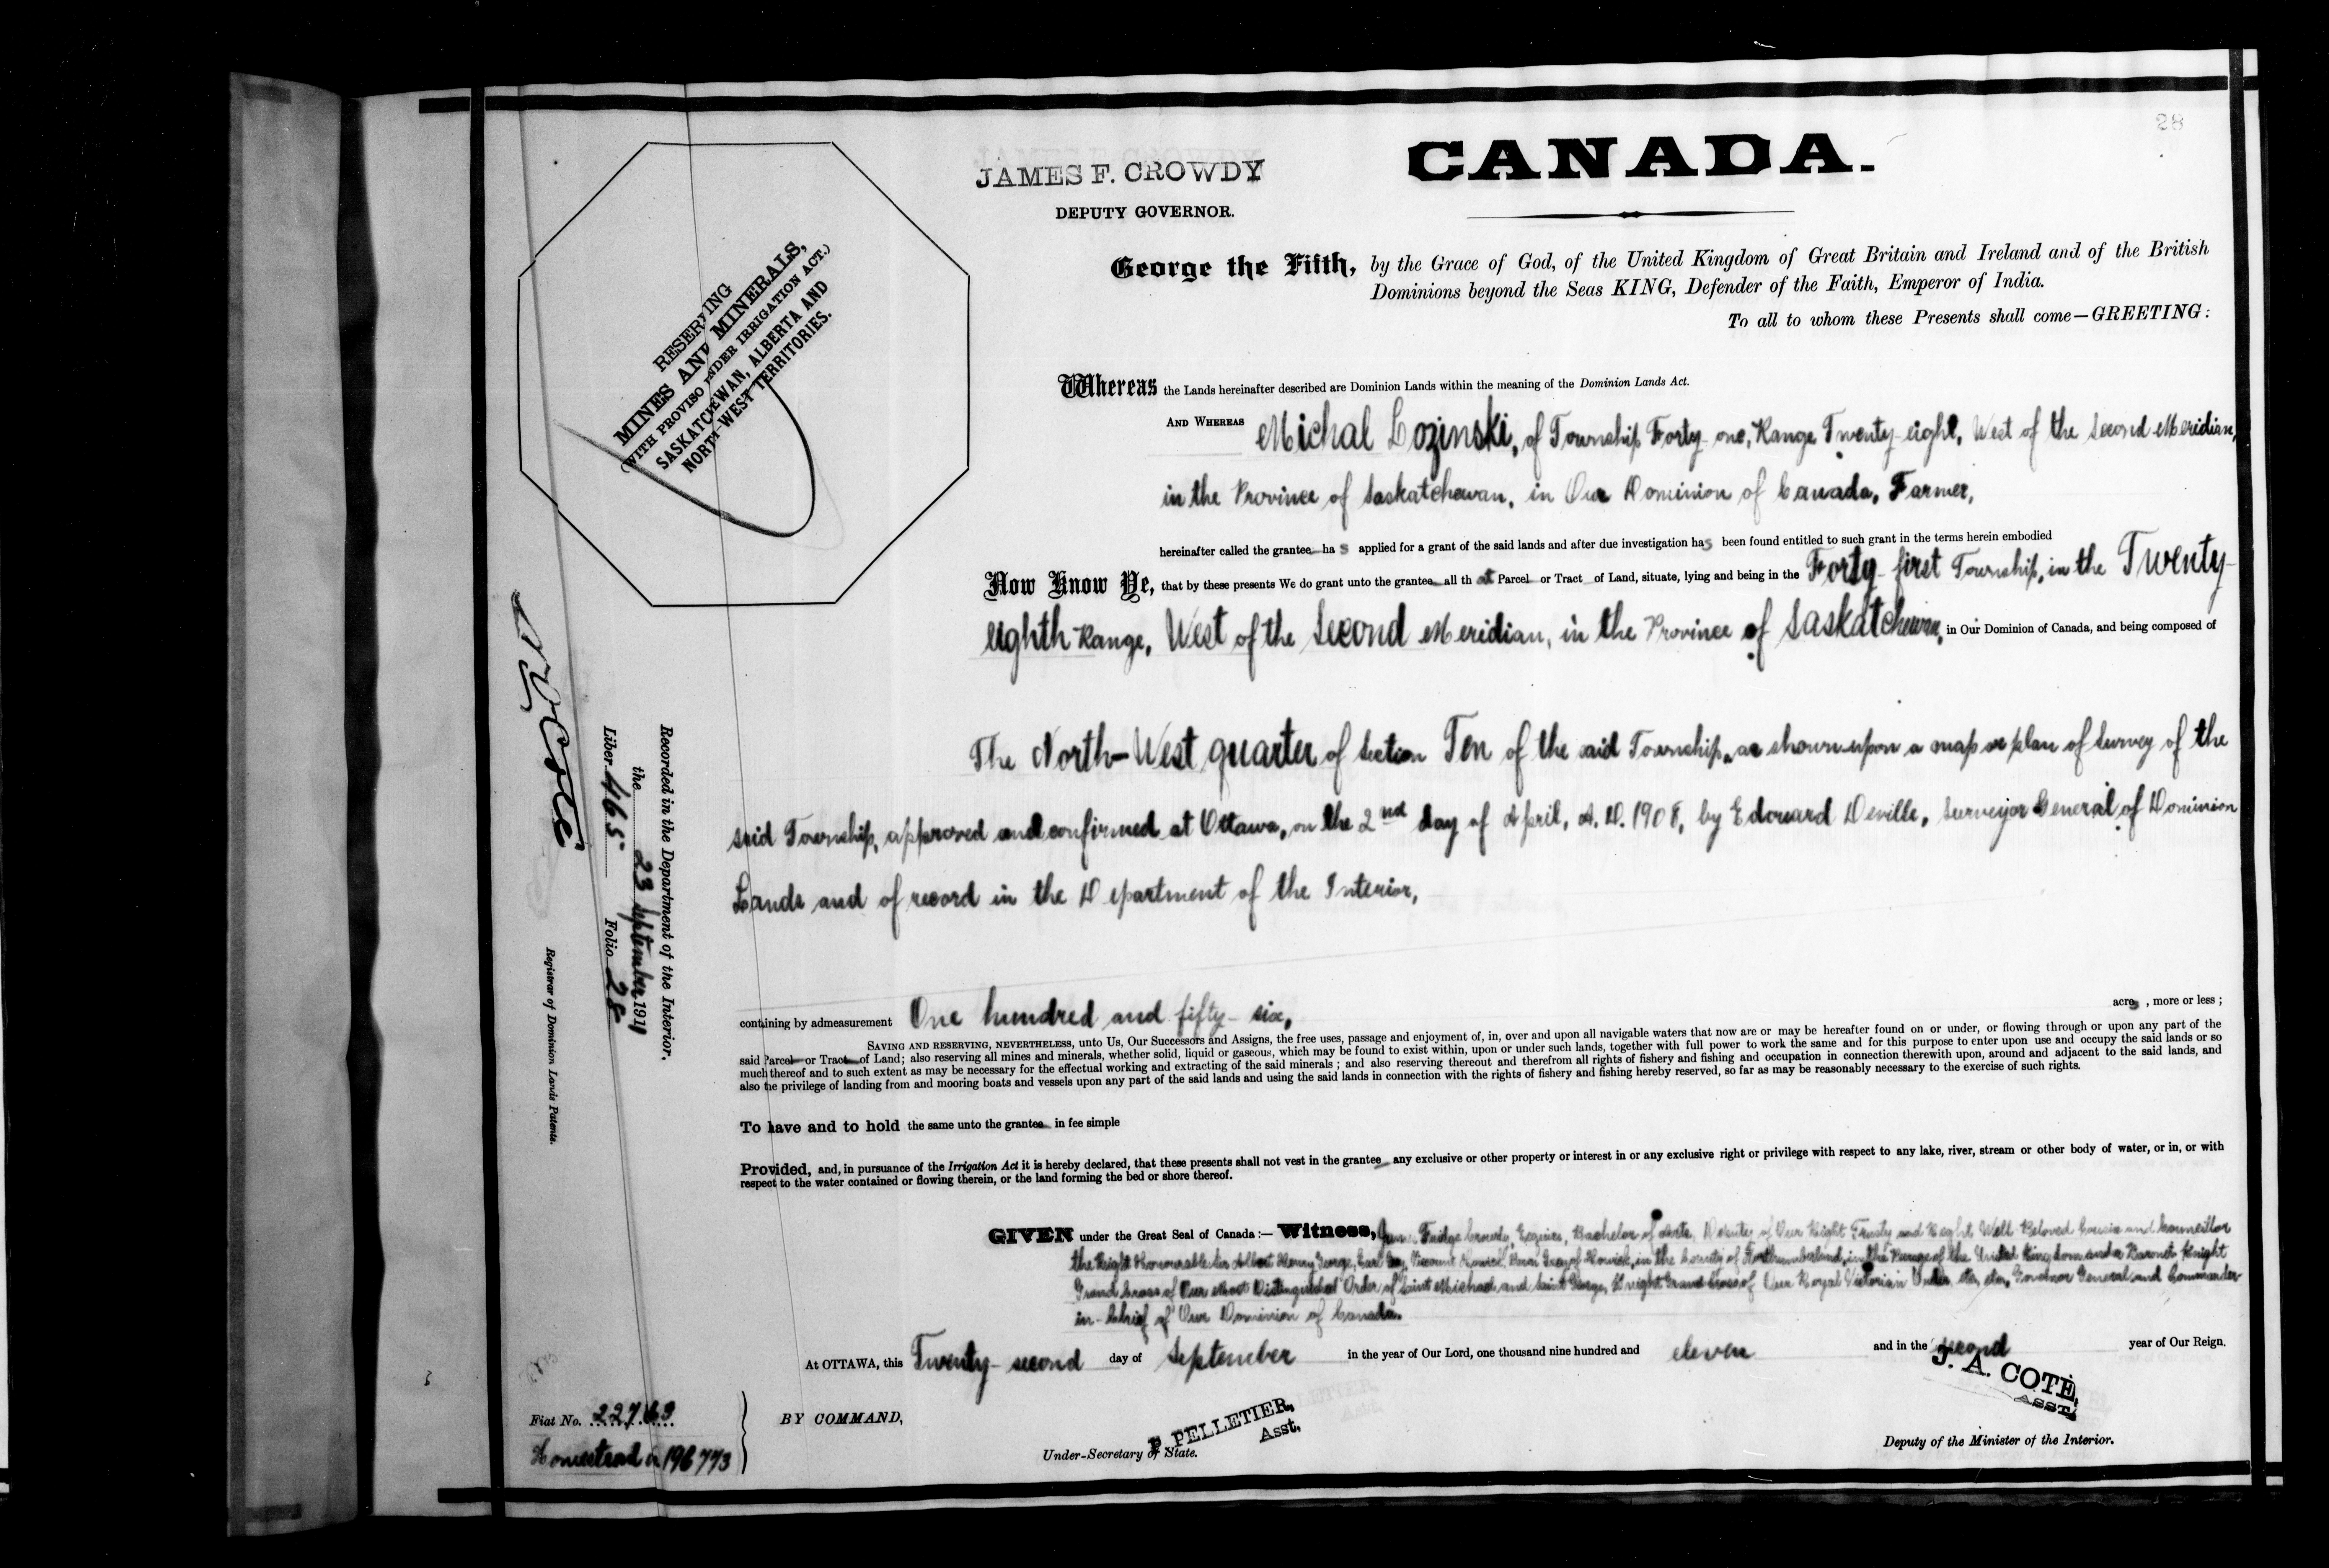 28
CANADA.
JAMES F. CROWDY
DEPUTY GOVERNOR.
George the Fifth, by the Grace of God, of the United Kingdom of Great Britain and Ireland and of the British
Dominions beyond the Seas KING, Defender of the Faith, Emperor of India.
To all to whom these Presents shall come—GREETING:
RESERVING
MINES AND MINERALS,
(WITH PROVISO UNDER IRRIGATION ACT.)
SASKATCHEWAN, ALBERTA AND
NORTH-WEST TERRITORIES.
Whereas the Lands hereinafter described are Dominion Lands within the meaning of the Dominion Lands Act.
AND WHEREAS Michal Lozinski, of Township Forty-one, Range Twenty-eight, West of the Second Meridian,
in the Province of Saskatchewan, in Our Dominion of Canada, Farmer,
hereinafter called the grantee has applied for a grant of the said lands and after due investigation has been found entitled to such grant in the terms herein embodied
Now Know Ye, that by these presents We do grant unto the grantee all that Parcel or Tract of Land, situate, lying and being in the Forty-first Township, in the Twenty-
eighth Range, West of the Second Meridian, in the Province of Saskatchewan, in Our Dominion of Canada, and being composed of
The North-West quarter of Section Ten of the said Township, as shown upon a map or plan of Survey of the
said Township, approved and confirmed at Ottawa, on the 2nd day of April, A.D. 1908, by Edouard Deville, Surveyor General of Dominion
Lands and of record in the Department of the Interior,
containing by admeasurement One hundred and fifty-six, acres, more or less;
SAVING AND RESERVING, NEVERTHELESS, unto Us, Our Successors and Assigns, the free uses, passage and enjoyment of, in, over and upon all navigable waters that now are or may be hereafter found on or under, or flowing through or upon any part of the
said Parcel or Tract of Land; also reserving all mines and minerals, whether solid, liquid or gaseous, which may be found to exist within, upon or under such lands, together with full power to work the same and for this purpose to enter upon use and occupy the said lands or so
much thereof and to such extent as may be necessary for the effectual working and extracting of the said minerals; and also reserving thereout and therefrom all rights of fishery and fishing and occupation in connection therewith upon, around and adjacent to the said lands, and
also the privilege of landing from and mooring boats and vessels upon any part of the said lands and using the said lands in connection with the rights of fishery and fishing hereby reserved, so far as may be reasonably necessary to the exercise of such rights.
To have and to hold the same unto the grantee in fee simple
Provided, and, in pursuance of the Irrigation Act it is hereby declared, that these presents shall not vest in the grantee any exclusive or other property or interest in or any exclusive right or privilege with respect to any lake, river, stream or other body of water, or in, or with
respect to the water contained or flowing therein, or the land forming the bed or shore thereof.
GIVEN under the Great Seal of Canada:— Witness, James Fudge Crowdy, Esquire, Bachelor of Arts, Deputy of Our Right Trusty and Right Well Beloved Cousin and Councillor
the Right Honourable Sir Albert Henry George, Earl Grey, Viscount Howick, Baron Grey of Howick, in the County of Northumberland, in the Peerage of the United Kingdom and a Baronet Knight
Grand Cross of Our Most Distinguished Order of Saint Michael and Saint George, Knight Grand Cross of Our Royal Victorian Order, etc, etc, Governor General and Commander-
in-Chief of Our Dominion of Canada.
At OTTAWA, this Twenty-second day of September in the year of Our Lord, one thousand nine hundred and eleven and in the second year of Our Reign.
BY COMMAND,
P. PELLETIER,
Asst.
Under-Secretary of State.
J. A. COTÉ,
ASST.
Deputy of the Minister of the Interior.
Fiat No. 22763
Homestead 196773
Recorded in the Department of the Interior,
the 23 September 1911
Liber 465 Folio 28
N O Coté
Registrar of Dominion Lands Patents.